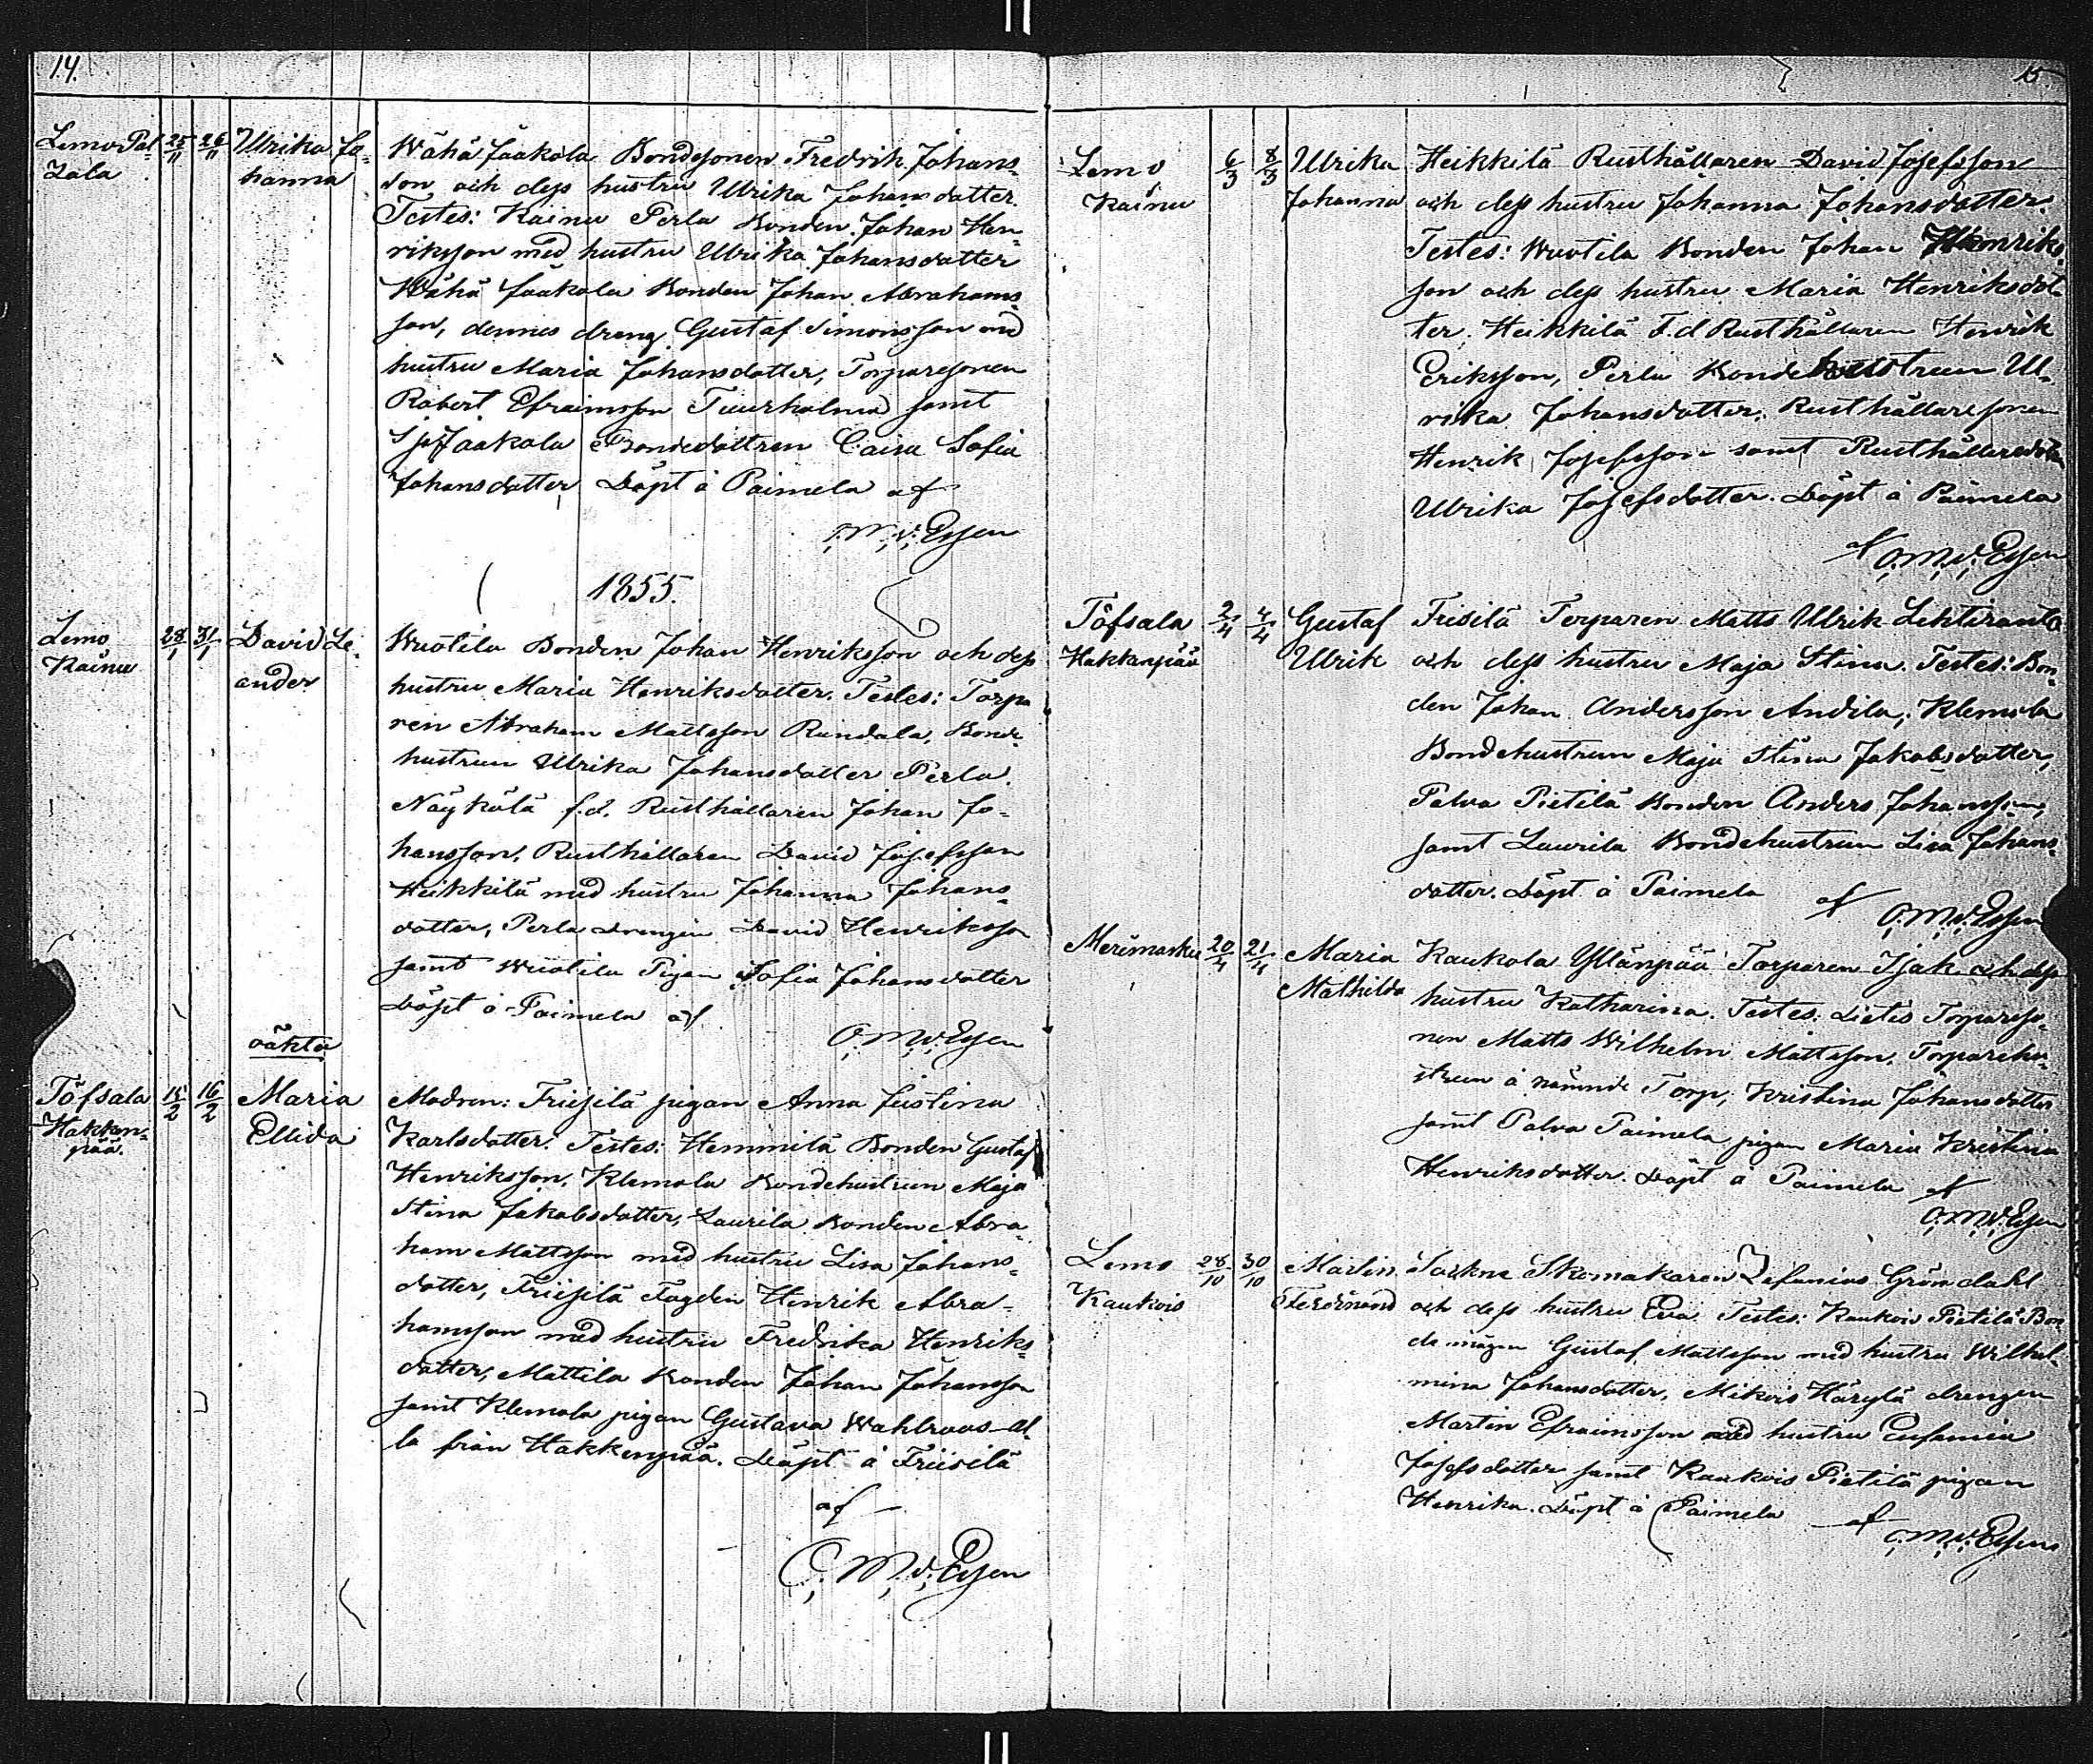 14.
Lemo Pal-
zala
25/11 26/11
Ulrika Jo-
hanna
Wähä Jaakola Bondesonen Fredrik Johans-
son och dess hustru Ulrika Johansdotter.
Testes: Kainu Perla Bonden Johan Hen-
riksson med hustru Ulrika Johansdotter
Wähä Jaakola Bonden Johan Abrahams-
son, dennes dreng Gustaf Simonsson med
hustru Maria Johansdotter, Torparesonen
Robert Efraimsson Tuurholma samt
Jaakola Bondedottren Caisa Sofia
Johansdotter Döpt å Paimela af
O. M. v. Essen
1855.
Lemo
Kainu
28/1 31/1
David Le-
ander
Wuotila Bonden Johan Henriksson och dess
hustru Maria Henriksdotter. Testes: Torpa
ren Abraham Mattsson Rundala, Bonde
hustrun Ulrika Johansdotter Perla,
Näykälä f.d. Rusthållaren Johan Jo-
hansson, Rusthållaren David Josefsson
Heikkilä med hustru Johanna Johans-
dotter, Perla drengen David Henriksson
samt Wuotila Pigan Sofia Johansdotter
Döpt å Paimela af
O. M. v. Essen
oäkta
Töfsala
Hakken-
pää.
15/2 16/2
Maria
Ellida
Modren: Friisilä pigan Anna Justina
Karlsdotter. Testes: Hemmilä Bonden Gustaf
Henriksson, Klemola Bondehustrun Maja
Stina Jakobsdotter, Laurila Bonden Abra-
ham Mattsson med hustru Lisa Johans-
dotter, Friisilä Fogden Henrik Abra-
hamsson med hustru Fredrika Henriks-
dotter, Mattila Bonden Johan Johansson
samt Klemola pigan Gustava Wahlroos al-
la från Hakkenpää. Döpt å Friisilä
af
O. M. v. Essen
15
Lemo
Kainu
6/3 8/3
Ulrika
Johanna
Heikkilä Rusthållaren David Josefsson
och dess hustru Johanna Johansdotter.
Testes: Wuotila Bonden Johan Henriks-
son och dess hustru Maria Henriksdot-
ter, Heikkilä F.d Rusthållaren Henrik
Eriksson, Perla Bondehustrun Ul-
rika Johansdotter, Rusthållaresonen
Henrik Josefsson samt Rusthållaredotn
Ulrika Josefsdotter. Döpt å Paimela
af O. M. v. Essen
Töfsala
Hakkenpää
2/4 4/4
Gustaf
Ulrik
Friisilä Torparen Matts Ulrik Lehtiranta
och dess hustru Maja Stina. Testes: Bon-
den Johan Andersson Andila, Klemola
Bondehustrun Maja Stina Jakobsdotter,
Palva Pietilä Bonden Anders Johansson,
samt Laurila Bondehustrun Lisa Johans-
dotter. Döpt å Paimela
af O. M. v. Essen
Merimasku
20/4 21/4
Maria
Mathilda
Kaukola Yllänpää Torparen Isak och dess
hustru Katharina. Testes: Lietis Torpareso-
nen Matts Wilhelm Mattsson, Torparehu-
strun å nämnde Torp, Kristina Johansdotter
samt Palva Paimela pigan Maria Kristina
Henriksdotter. Döpt å Paimela af
O. M. v. Essen
Lemo
Kaukois
28/10 30/10
Martin
Ferdinand
Skomakaren Zefanias Gröndahl
och dess hustru Eva Testes: Kaukois Pietilä Bon
de mågen Gustaf Mattsson med hustru Wilhel-
mina Johansdotter, Mikois Härylä drengen
Martin Efraimsson med hustru Eufemia
Josefsdotter samt Kaukois Pietilä pigan
Henrika. Döpt å Paimela af
O. M. v. Essen